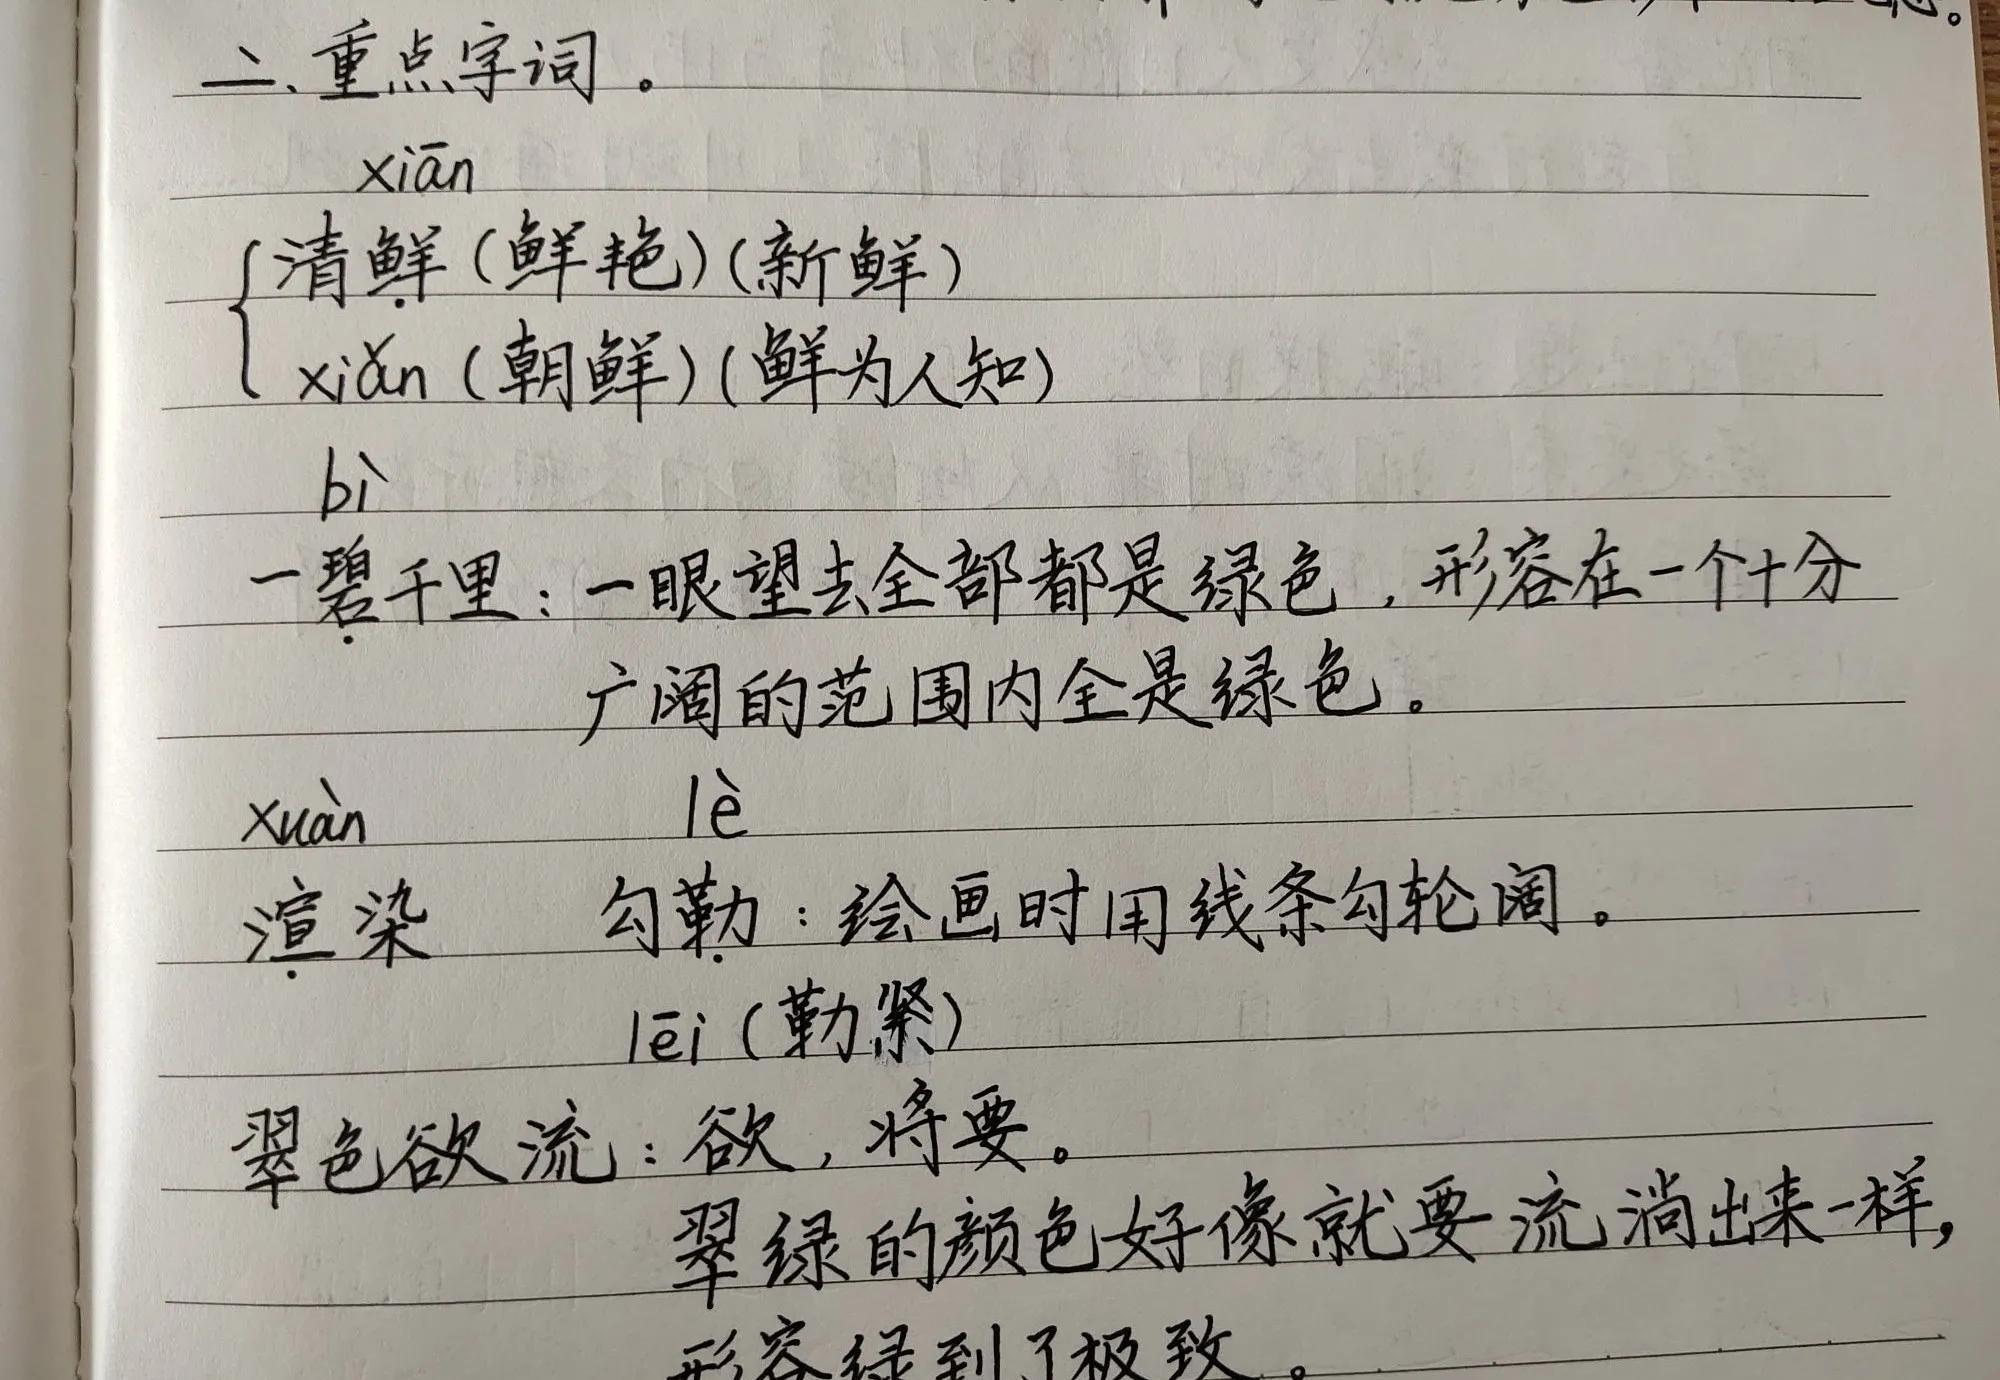 二、重点字词。
xiān
清鲜(鲜艳)(新鲜)
xiǎn(朝鲜)(鲜为人知)
bì
一碧千里:一眼望去全部都是绿色,形容在一个十分
广阔的范围内全是绿色。
xuàn lè
渲染 勾勒:绘画时用线条勾轮阔。
lēi(勒紧)
翠色欲流:欲,将要。
翠绿的颜色好像就要流淌出来一样,
形容绿到了极致。